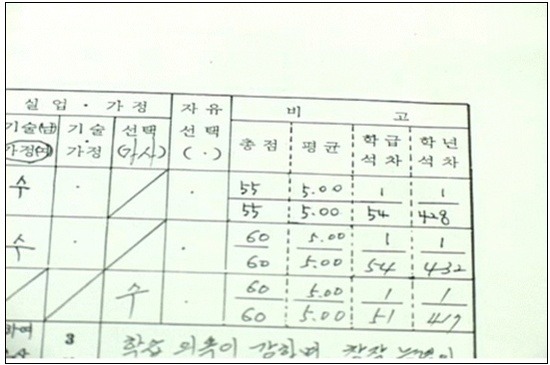 실 업 · 가 정 자 유 비 고
기술(남) 기 술 선 택 선 택 총 점 평 균 학 급 학 년
가정(여) 가 정 (가사) ( . ) 석 차 석 차
수 · · 55 5.00 1 1
55 5.00 54 428
수 · · 60 5.00 1 1
60 5.00 54 432
수 · 60 5.00 1 1
60 5.00 51 417
하여 3 학습 의욕이 강하며